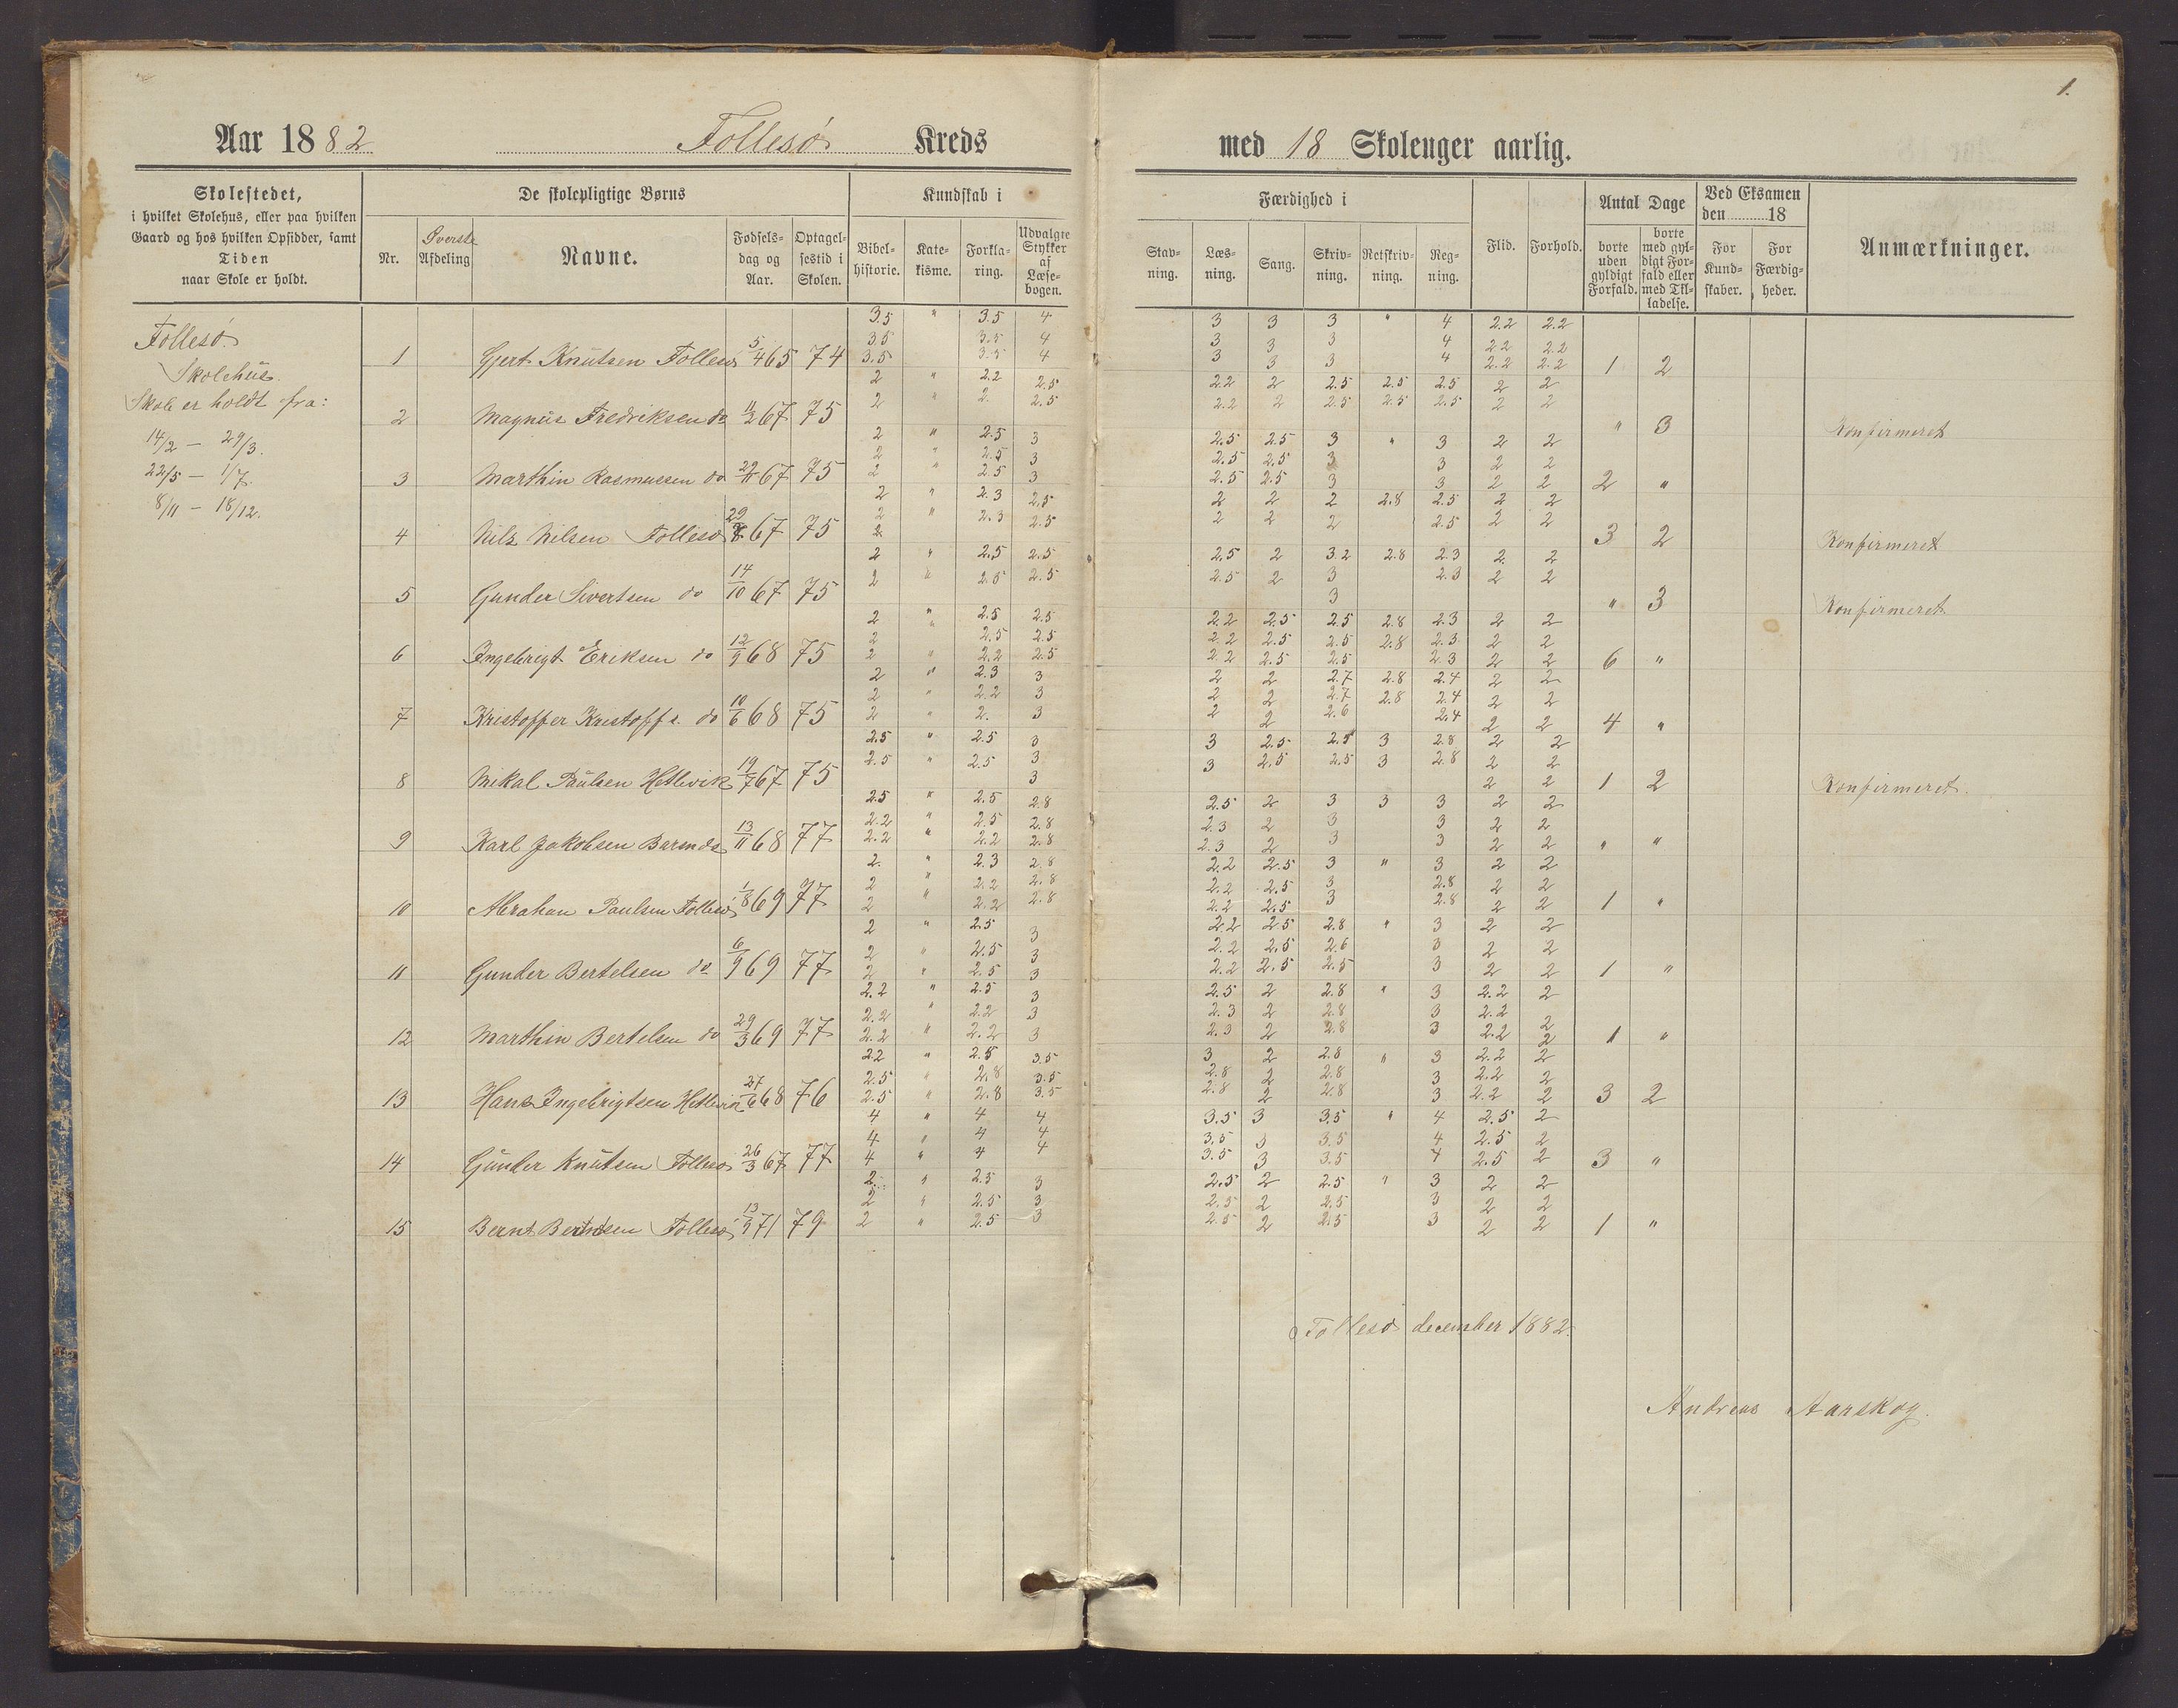 1.
Aar 1882 Follesø Kreds med 18 Skolenger aarlig.
Skolestedet,
i hvilket Skolehus, eller paa hvilken
Gaard og hos hvilken Opsidder, samt
Tiden
naar Skole er holdt.
De skolepligtige Børns
Nr.
Øverste
Afdeling
Navne.
Fødsels-
dag og
Aar.
Optagel-
sestid i
Skolen.
Kundskab i
Bibel-
historie.
Kate-
kisme.
Forkla-
ring.
Udvalgte
Stykker
af
Læse-
bogen.
Færdighed i
Stav-
ning.
Læs-
ning.
Sang.
Skriv-
ning.
Retskriv-
ning.
Reg-
ning.
Flid.
Forhold.
Antal Dage
borte
uden
gyldigt
Forfald.
borte
med gyl-
digt For-
fald eller
med Til-
ladelse.
Ved Eksamen
den 18
For
Kund-
skaber.
For
Færdig-
heder.
Anmærkninger.
Follesø
Skolehus.
Skole er holdt fra:
14/2 – 29/3.
22/5 – 1/7.
8/11 – 18/12.
3.5 " 3.5 4 3 3 3 " 4 2.2 2.2
3.5 3.5 4 3 3 3 4 2.2 2.2
1 Gjert Knutsen Follesø 5/4 65 74 3.5 3.5 4 3 3 3 4 2.2 2.2 1 2
2 " 2.2 2.5 2.2 2 2.5 2.5 2.5 2 2
2 " 2. 2.5 2.2 2 2.5 2.5 2.5 2 2
2 Magnus Fredriksen do 11/2 67 75 " 3 Konfirmeret
2 " 2.5 3 2.5 2.5 3 " 3 2 2
2 " 2.5 3 2.5 2.5 3 3 2 2
3 Marthin Rasmussen do 22/11 67 75 2 " 2.5 3 2.5 2.5 3 3 2 2 2 "
2 " 2.3 2.5 2 2 2 2.8 2.5 2 2
2 " 2.3 2.5 2 2 2 2.5 2 2
4 Nils Nilsen Follesø 29/8 67 75 2. 3 2 Konfirmeret
2 " 2.5 2.5 2.5 2 3.2 2.8 2.3 2 2
2 " 2.5 2.5 2.5 2 3 2.3 2 2
5 Gunder Sivertsen do 14/10 67 75 3 " 3 Konfirmeret
2 " 2.5 2.5 2.2 2.5 2.5 2.8 2.3 2 2
2 " 2.5 2.5 2.2 2.5 2.5 2.8 2.3 2 2
6 Ingebrigt Eriksen do 12/9 68 75 2 " 2.2 2.5 2.2 2.5 2.5 2.3 2 2 6 "
2 " 2.3 3 2 2 2.7 2.8 2.4 2 2
2 " 2.2 3 2 2 2.7 2.8 2.4 2 2
7 Kristoffer Kristoffs. do 10/6 68 75 2 " 2. 3 2 2 2.6 2.4 2 2 4 "
2.5 " 2.5 3 3 2.5 2.5 3 2.8 2 2
2.5 " 2.5 3 3 2.5 2.5 3 2.8 2 2
8 Mikal Paulsen Hetlevik 19/7 67 75 3 2 2 1 2 Konfirmeret.
2.5 " 2.5 2.8 2.5 2 3 3 3 2 2
2.2 " 2.5 2.8 2.3 2 3 3 2 2
9 Karl Jakobsen 13/11 68 77 2.2 " 2.2 2.8 2.3 2 3 3 2 2 " "
2. " 2.3 2.8 2.2 2.5 3 " 3 2 2
2 " 2.2 2.8 2.2 2.5 3 2.8 2 2
10 Abraham Paulsen Follesø 1/8 69 77 2 " 2.2 2.8 2.2 2.5 3 2.8 2 2 1 "
2 " 2.5 3 2.2 2.5 2.8 " 3 2 2
2 " 2.5 3 2.2 2.5 2.6 3 2 2
11 Gunder Bertelsen do 6/9 69 77 2 " 2.5 3 2.2 2.5 2.5 3 2 2 1 "
2.2 " 2.5 3 2.5 2 2.8 " 3 2.2 2
2.2 " 2.2 3 2.3 2 2.8 3 2.2 2
12 Marthin Bertelsen do 29/3 69 77 2.2 " 2.2 3 2.3 2 2.8 3 2.2 2 1 "
2.2 " 2.5 3.5 3 2 2.8 " 3 2.2 2
2.5 " 2.8 3.5 2.8 2 2.8 3 2.2 2
13 Hans Ingebrigtsen Hetlevik 27/6 68 76 2.5 " 2.8 3.5 2.8 2 2.8 3 2.2 2 3 2
4 " 4 4 3.5 3 3.5 " 4 2.5 2
4 " 4 4 3.5 3 3.5 4 2.5 2
14 Gunder Knutsen Follesø 26/3 67 77 4 " 4 4 3.5 3 3.5 4 2.5 2 3 "
2. " 2.5 3 2.5 2 2.5 " 3 2 2
2 " 2.5 3 2.5 2 2.5 3 2 2
15 Bernt Berntsen Follesø 13/9 71 79 2 " 2.5 3 2.5 2 2.5 3 2 2 1 "
Follesø december 1882.
Andreas Aarskog.